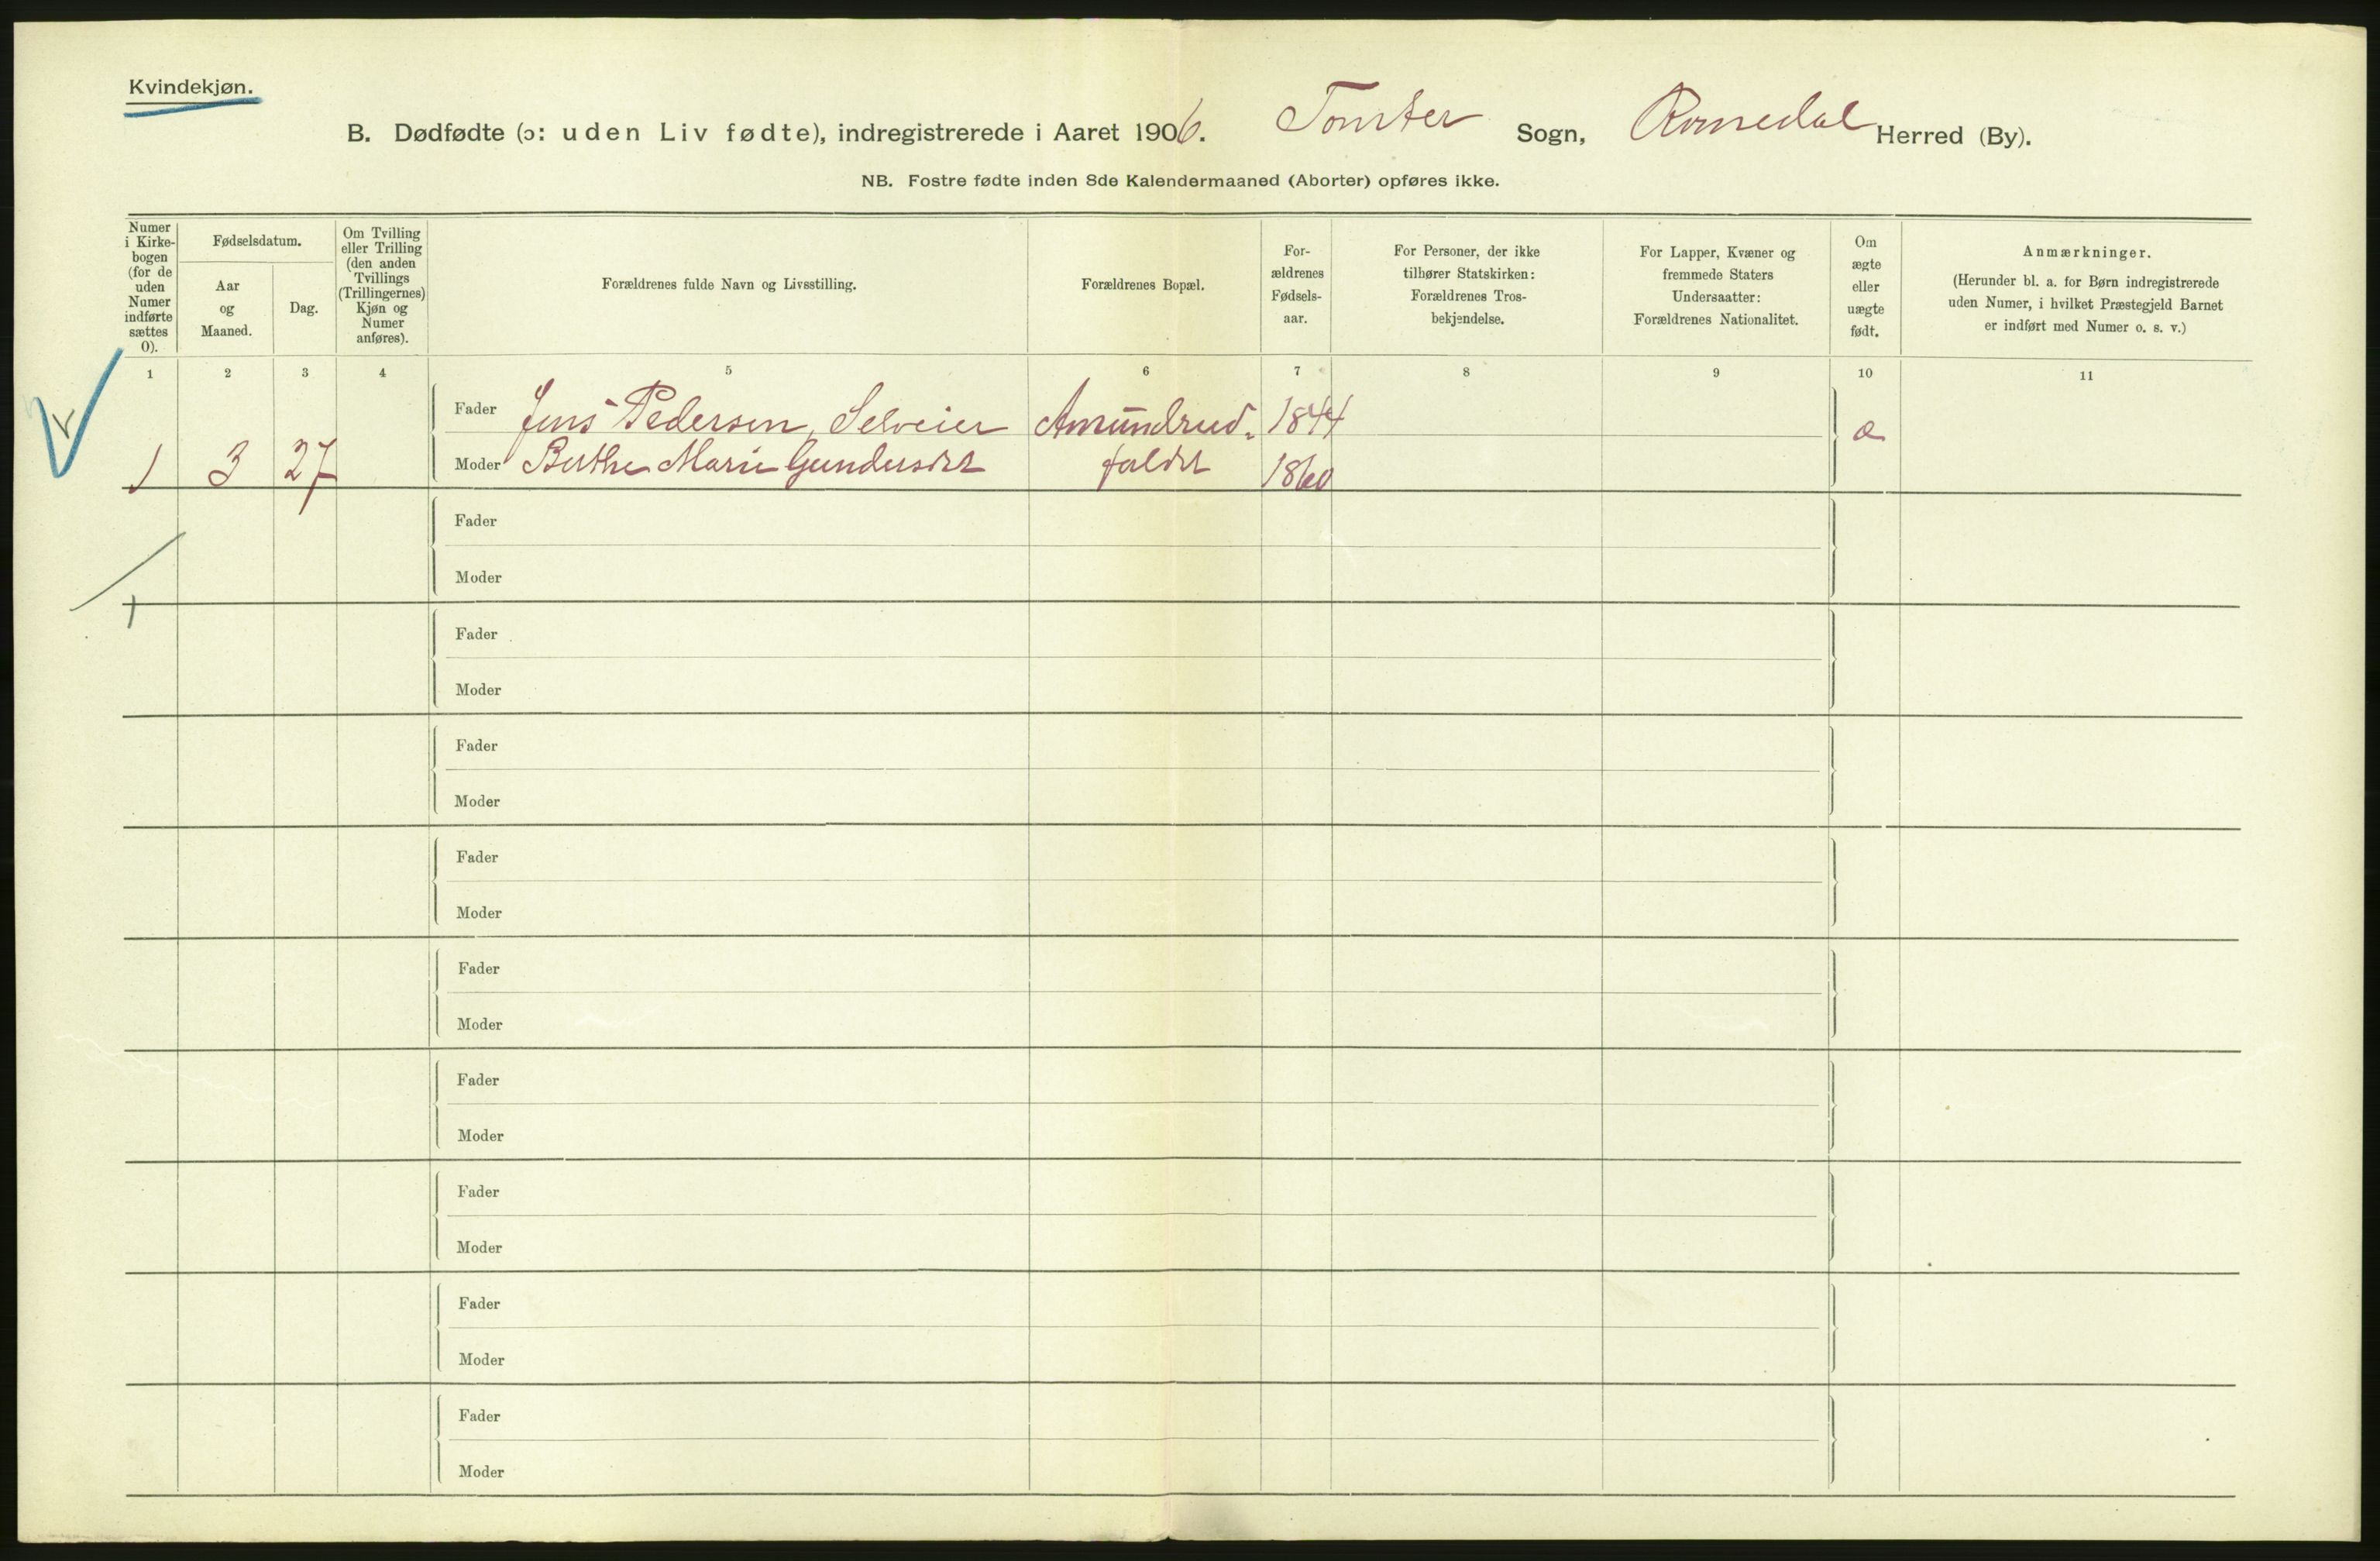 Kvindekjøn.
B. Dødfødte (ɔ: uden Liv fødte), indregistrerede i Aaret 1906. Tomter Sogn, Romedal Herred (By).
NB. Fostre fødte inden 8de Kalendermaaned (Aborter) opføres ikke.
Numer i Kirke-bogen (for de uden Numer indførte sættes 0).
Fødselsdatum.
Aar og Maaned.
Dag.
Om Tvilling eller Trilling (den anden Tvillings (Trillingernes) Kjøn og Numer anføres).
Forældrenes fulde Navn og Livsstilling.
Forældrenes Bopæl.
For-ældrenes Fødsels-aar.
For Personer, der ikke tilhører Statskirken: Forældrenes Tros-bekjendelse.
For Lapper, Kvæner og fremmede Staters Undersaatter: Forældrenes Nationalitet.
Om ægte eller uægte født.
Anmærkninger.
(Herunder bl. a. for Børn indregistrerede uden Numer, i hvilket Præstegjeld Barnet er indført med Numer o. s. v.)
1 2 3 4 5 6 7 8 9 10 11
Fader Jens Pedersen, Selveier Amundrud- 1844 æ
1 3 27 Moder Berthe Marie Gundersdt faldet 1860
Fader
Moder
Fader
Moder
Fader
Moder
Fader
Moder
Fader
Moder
Fader
Moder
Fader
Moder
Fader
Moder
Fader
Moder